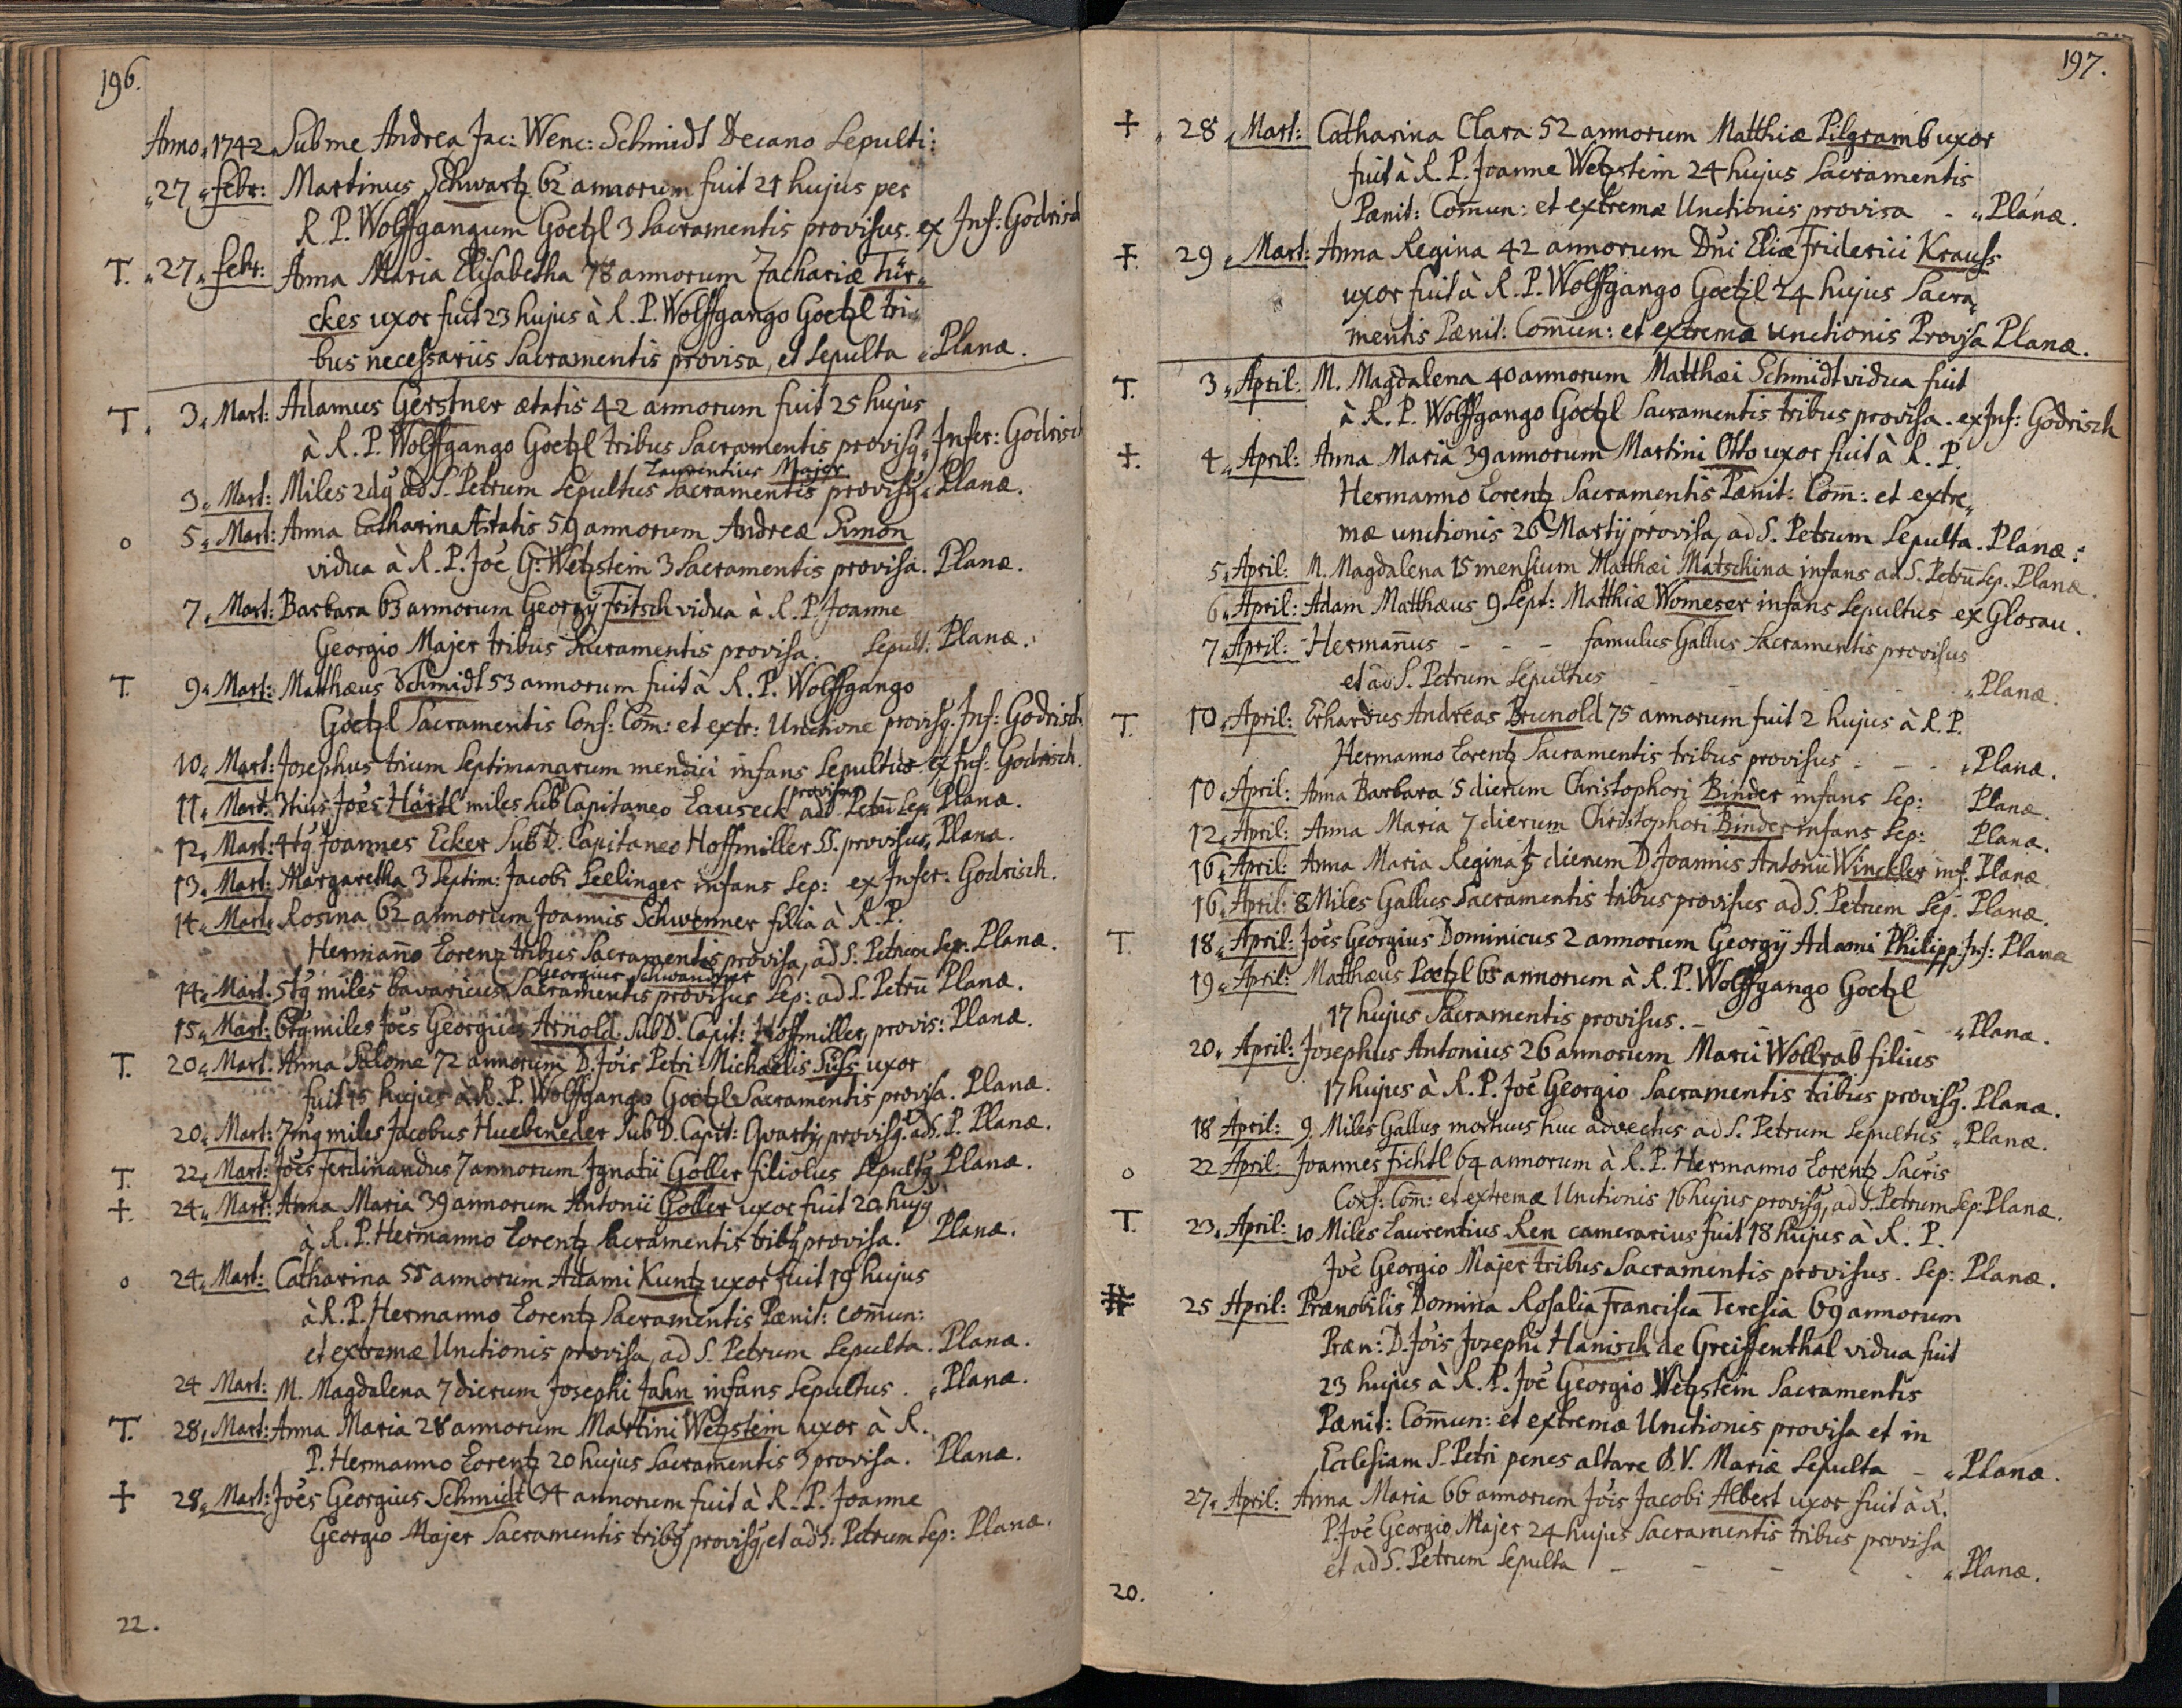 196.
Anno 1742 Sub me Andrea Jac: Wenc: Schmidt Decano Sepulti:
27 febr: Martinus Schwartz 62 annorum fuit 21 hujus per
R. P. Wolffgangum Goetzl 3 Sacramentis provisus. ex Inf: Godrisch
T. 27 febr: Anna Maria Elisabetha 78 annorum Zachariæ Tür„
ckes uxor fuit 23 hujus à R. P. Wolffgango Goetzl tri„
bus necessariis Sacramentis provisa, et sepulta „ Planæ.
T. 3 Mart: Adamus Gerstner ætatis 42 annorum fuit 25 hujus
à R. P. Wolffgango Goetzl tribus Sacramentis provisq, Infer: Godrisch
Laurentius Majer
3 Mart: Miles 2dq ad S. Petrum Sepultus Sacramentis provisq „ Planæ.
o 5 Mart: Anna Catharina Ætatis 59 annorum Andreæ Simon
vidua à R. P. Joē G: Wetzstein 3 Sacramentis provisa. Planæ.
7 Mart: Barbara 63 annorum Georgÿ Fritsch vidua à R. P. Joanne
Georgio Majer tribus Sacramentis provisa. Sepult: Planæ.
T. 9 Mart: Matthæus Schmidt 53 annorum fuit à R. P. Wolffgango
Goetzl Sacramentis Conf: Com̄: et extr: Unctione provisq. Inf: Godrisch
10 Mart: Josephus trium Septimanarum mendici infans Sepultus ex Inf: Godrisch.
provisus
11 Mart: 3tius Joēs Härtl miles Sub Capitaneo Lauseck ad S. Petrū Sep. Planæ.
12 Mart: 4tq Joannes Ecker Sub D. Capitaneo Hoffmiller SS. provisus, Planæ.
13 Mart: Margaretha 3 Septim: Jacobi Seelinger infans Sep: ex Infer: Godrisch.
14 Mart: Rosina 62 annorum Joannis Schwenner filia à R. P.
Hermano Lorenz tribus Sacramentis provisa, ad S: Petrum Sep. Planæ.
Georgius Schwandner
14 Mart: 5tq miles bavaricus Sacramentis provisus Sep: ad S. Petrū Planæ.
15 Mart: 6tq miles Joēs Georgius Arnold Sub D. Capit: Hoffmiller, provis: Planæ.
T. 20 Mart: Anna Salome 72 annorum D. Jōis Petri Michaelis Süss uxor
fuit 15 hujus à R. P. Wolffgango Goetzl Sacramentis provisa. Planæ.
20 Mart: 7mq miles Jacobus Huebeneder Sub D. Capit: Qvarty, provisq. ad S. P. Planæ.
T. 22 Mart: Joēs Ferdinandus 7 annorum Ignatii Goller filiolus Sepultq. Planæ.
+ 24 Mart: Anna Maria 39 annorum Antonii Goller uxor fuit 20 hujq
à R. P. Hermanno Lorentz Sacramentis tribq provisa. Planæ.
o 24 Mart: Catharina 55 annorum Adami Kuntz uxor fuit 19 hujus
à R. P. Hermanno Lorentz Sacramentis Pænit: comun:
et extremæ Unctionis provisa, ad S. Petrum Sepulta. Planæ.
24 Mart: M. Magdalena 7 dierum Josephi Jahn infans Sepultus. „ Planæ.
T. 28 Mart: Anna Maria 28 annorum Martini Wetzstein uxor à R.
P. Hermanno Lorentz 20 hujus Sacramentis 3 provisa. Planæ.
+ 28 Mart: Joēs Georgius Schmidt 34 annorum fuit à R. P. Joanne
Georgio Majer Sacramentis tribq provisq, et ad S: Petrum Sep: Planæ.
22.
197.
+ 28 Mart: Catharina Clara 52 annorum Matthiæ Pilgramb uxor
fuit à R. P. Joanne Wetzstein 24 hujus Sacramentis
Pænit: Comun: et extremæ Unctionis provisa - „ Planæ.
+ 29 Mart: Anna Regina 42 annorum Dn̄i Eliæ Friderici Krauss
uxor fuit à R. P. Wolffgango Goetzl 24 hujus Sacra„
mentis Pænit: Comun: et extremæ unctionis Provisa Planæ.
T. 3 April: M. Magdalena 40 annorum Matthæi Schmidt vidua fuit
à R. P. Wolffgango Goetzl Sacramentis tribus provisa. ex Inf: Godrisch
+ 4 April: Anna Maria 39 annorum Martini Otto uxor fuit à R. P.
Hermanno Lorentz Sacramentis Pænit: Com̄: et extre„
mæ unctionis 26 Martÿ provisa, ad S. Petrum Sepulta. Planæ.
5 April: M. Magdalena 15 mensium Matthæi Matschina infans ad S. Petrū Sep. Planæ.
6 April: Adam Matthæus 9 Sept: Matthiæ Womeser infans Sepultus ex Glosau.
7 April: Hermanus - - - famulus Gallus Sacramentis provisus
et ad S. Petrum Sepultus - - - - „ Planæ.
T. 10 April: Erhardus Andreas Brunold 75 annorum fuit 2 hujus à R. P.
Hermanno Lorentz Sacramentis tribus provisus - - - „ Planæ.
10 April: Anna Barbara 5 dierum Christophori Binder infans Sep: Planæ.
12 April: Anna Maria 7 dierum Christophori Binder infans Sep: Planæ.
16 April: Anna Maria Regina dierum D. Joannis Antonii Winckler inf. Planæ
16 April: 8 Miles Gallus Sacramentis tribus provisus ad S. Petrum Sep. Planæ.
T. 18 April: Joēs Georgius Dominicus 2 annorum Georgÿ Adami Philipp. Inf: Planæ
19 April: Matthæus Poetzl 65 annorum à R. P. Wolffgango Goetzl
17 hujus Sacramentis provisus. - - - - „ Planæ.
20 April: Josephus Antonius 26 annorum Marci Wollrab filius
17 hujus à R. P. Joē Georgio Sacramentis tribus provisq. Planæ.
18 April: 9. Miles Gallus mortuus huc advectus ad S. Petrum Sepultus „ Planæ.
o 22 April: Joannes Fichtl 64 annorum à R. P. Hermanno Lorentz Sacris
Conf: Com̄: et extremæ Unctionis 16 hujus provisq, ad S. Petrum Sep: Planæ.
T. 23 April: 10 Miles Laurentius Ren camerarius fuit 18 hujus à R. P.
Joē Georgio Majer tribus Sacramentis provisus. Sep: Planæ.
# 25 April: Prænobilis Domina Rosalia Francisca Teresia 69 annorum
Præn: D. Jōis Josephi Hanisch de Greiffenthal vidua fuit
23 hujus à R. P. Joē Georgio Wetzstein Sacramentis
Pænit: Comun: et extremæ Unctionis provisa et in
Ecclesiam S. Petri penes altare B. V. Mariæ Sepulta - „ Planæ.
27 April: Anna Maria 66 annorum Jōis Jacobi Albert uxor fuit à R.
P. Joē Georgio Majer 24 hujus Sacramentis tribus provisa
et ad S. Petrum Sepulta - - - - - „ Planæ.
20.